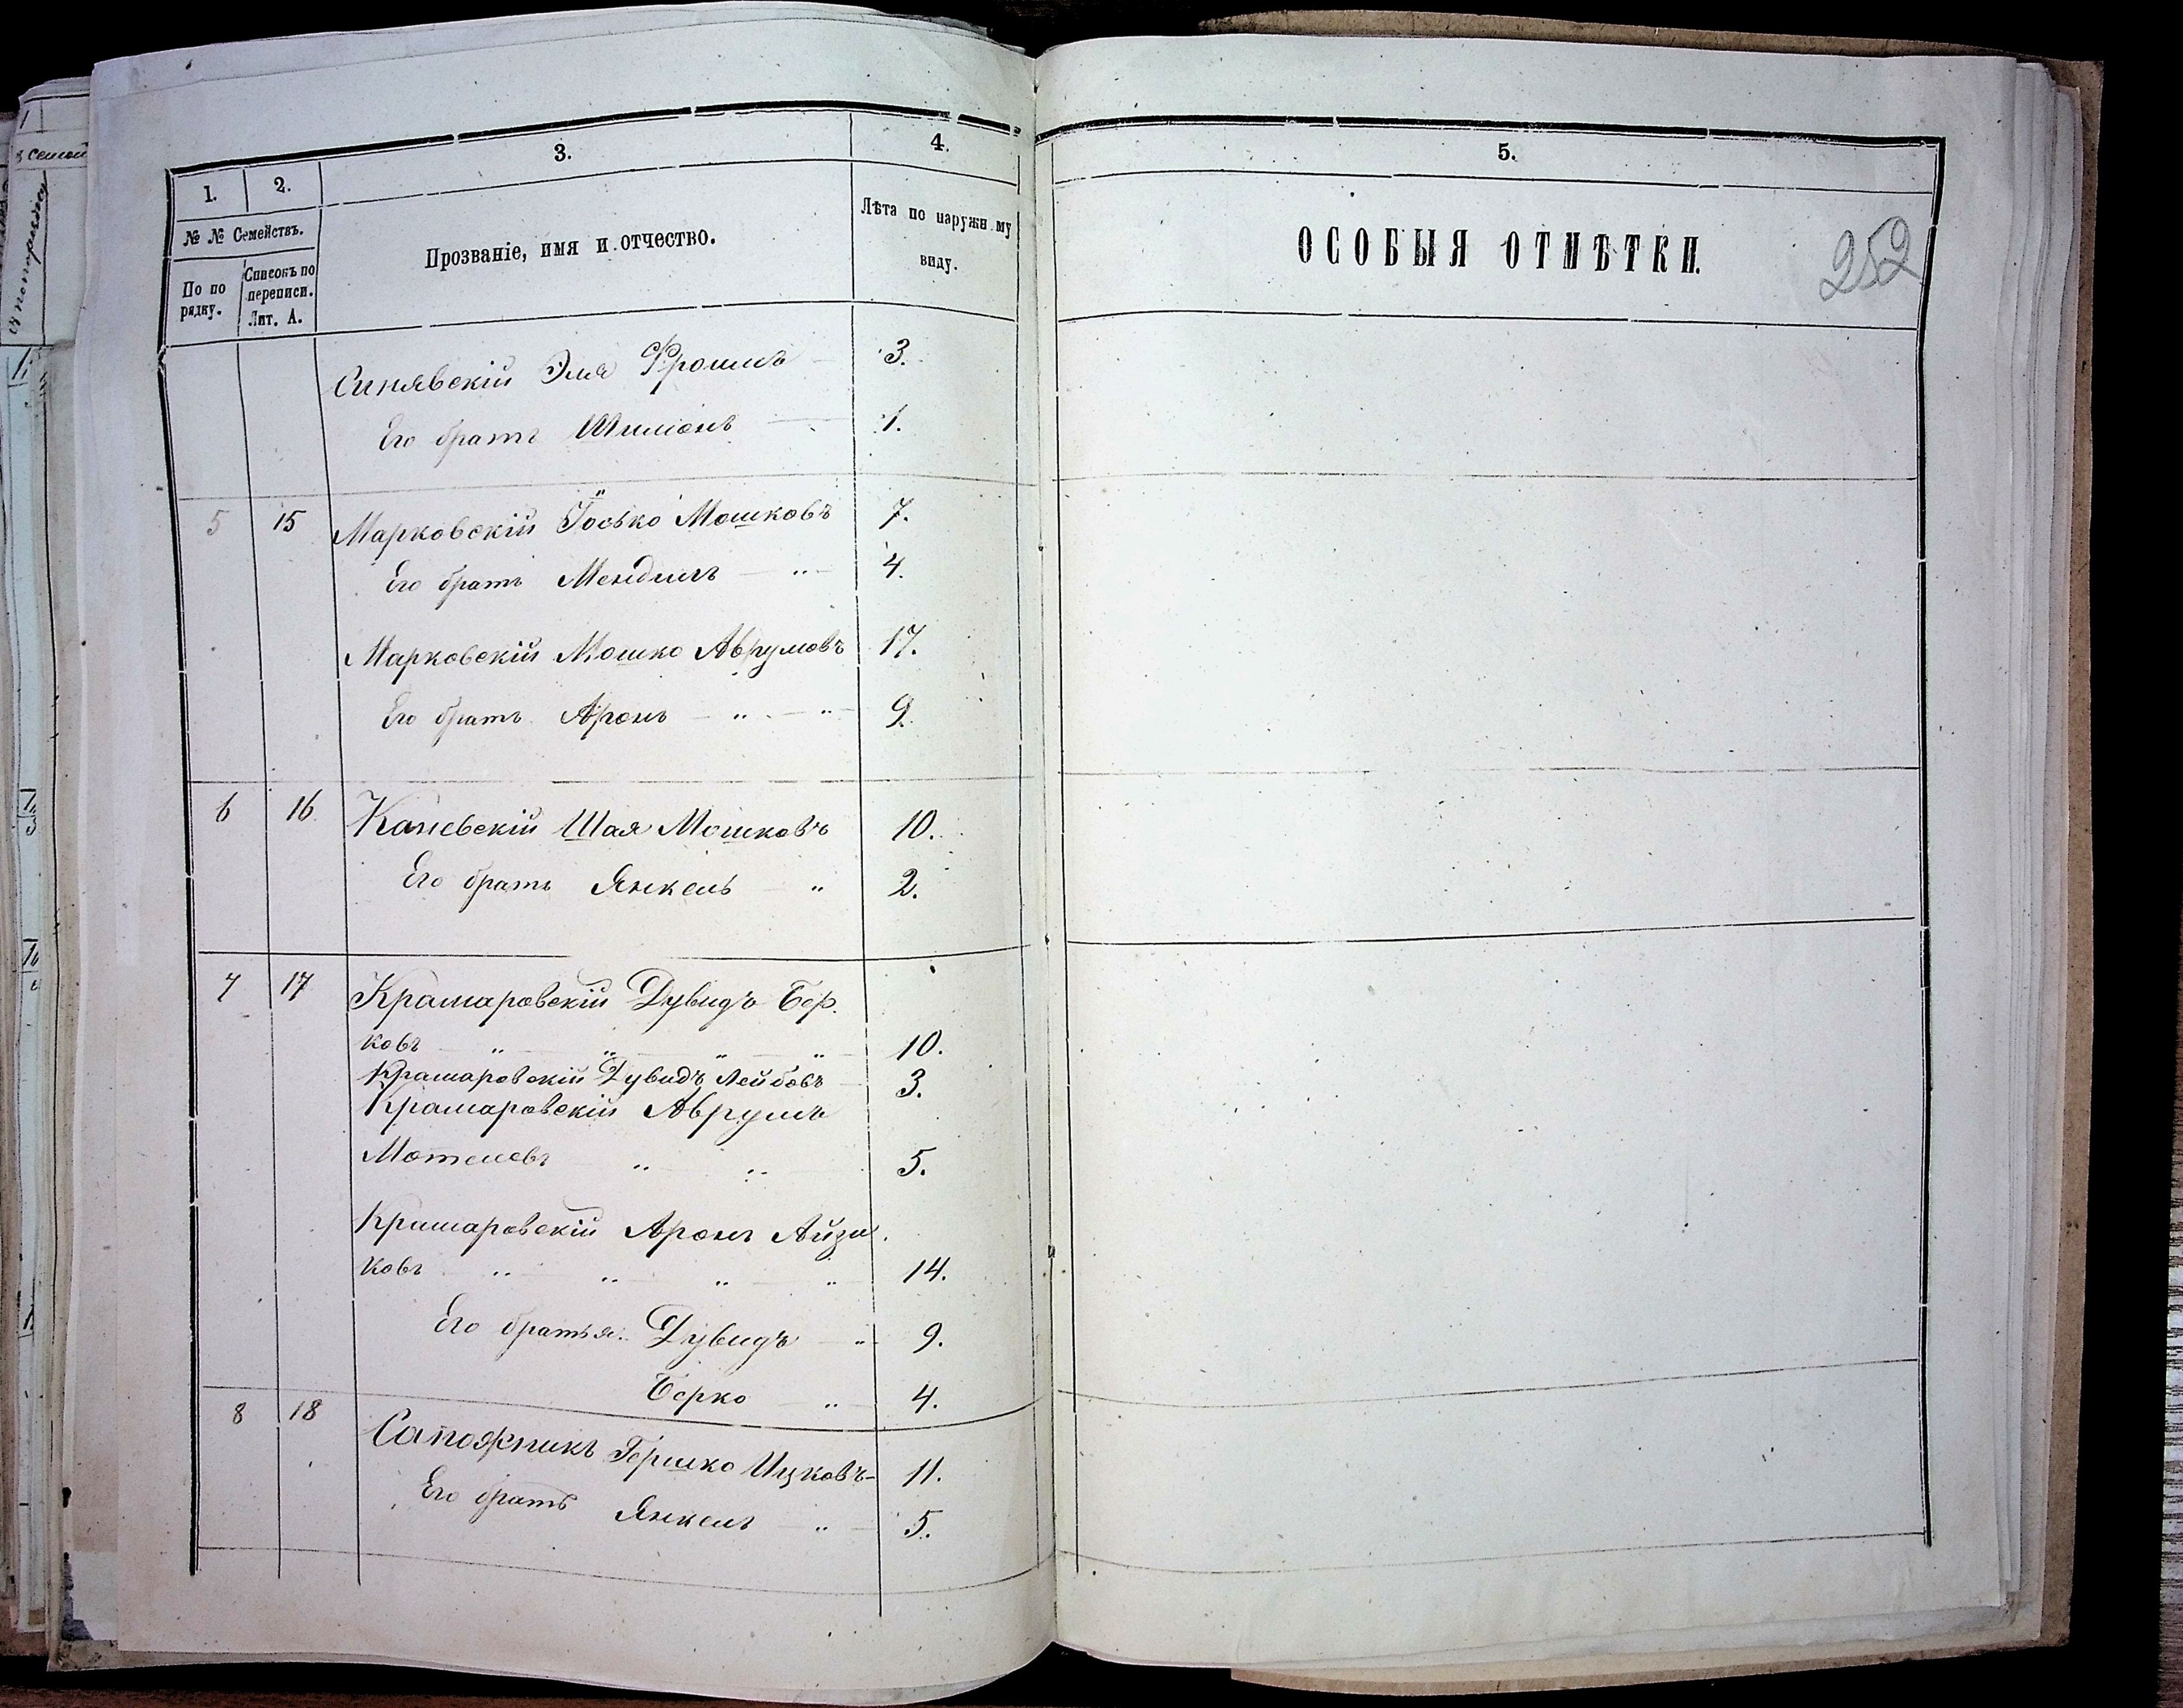 1. 2. 3. 4. 5.
№ № Семействъ.
По по рядку.
Списокъ по переписи. Лит. А.
Прозваніе, имя и отчество.
Лѣта по наружн му виду.
ОСОБЫЯ ОТМѢТКИ.
252
Синявскій Эля Фроимъ 3.
Его братъ Шимонъ 1.
5 15 Марковскій Іосько Мошковъ 7.
Его братъ Мендель 4.
Марковскій Мошко Аврумовъ 17.
Его братъ Аронъ 9.
6 16 Каневскій Шая Мошковъ 10.
Его братъ Янкель 2.
7 17 Крамаровскій Дувидъ Бер.
ковъ 10.
Крамаровскій Дувидъ Лейбовъ 3.
Крамаровскій Аврумъ
Мотелевъ 5.
Крамаровскій Аронъ Айзи.
ковъ 14.
Его братья: Дувидъ 9.
Берко 4.
8 18 Сапожникъ Гершко Ицковъ 11.
Его братъ Янкель 5.